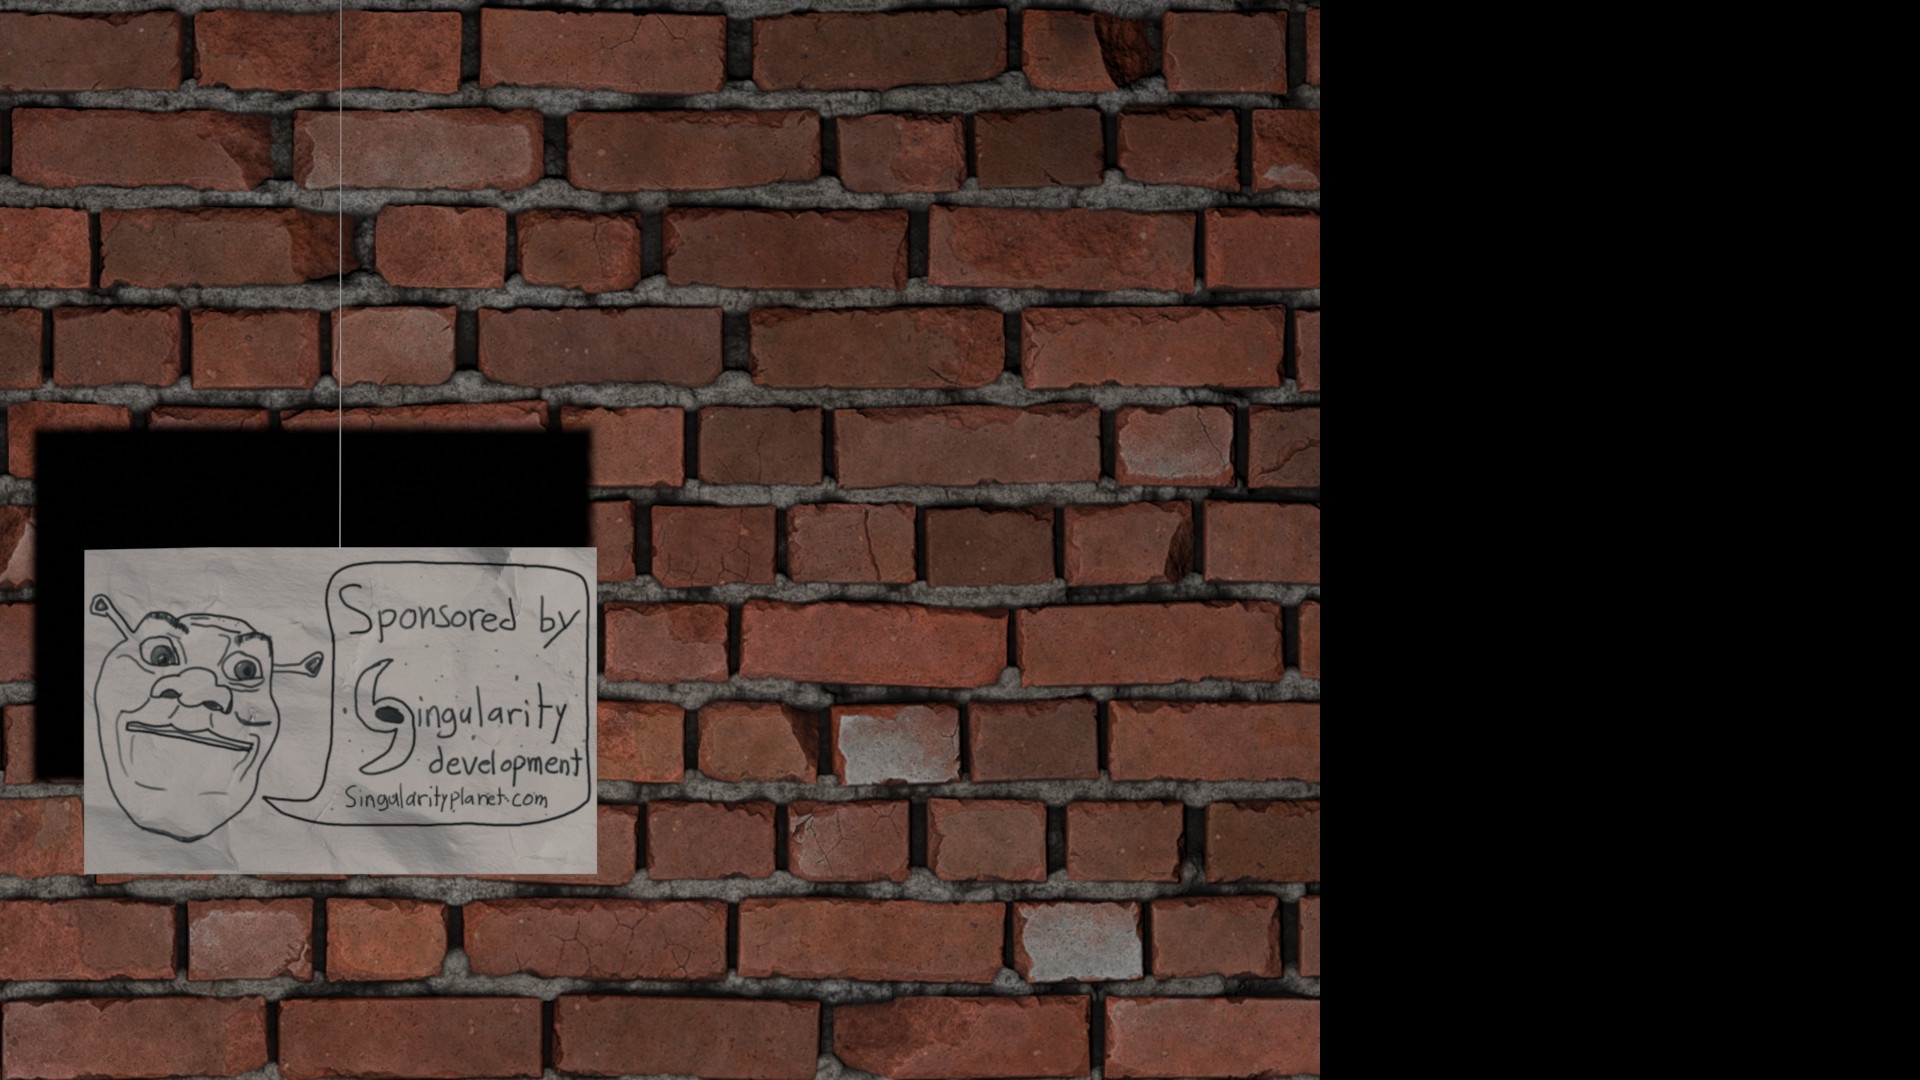 Sponsored by
Singularity
development
Singularityplanet.com